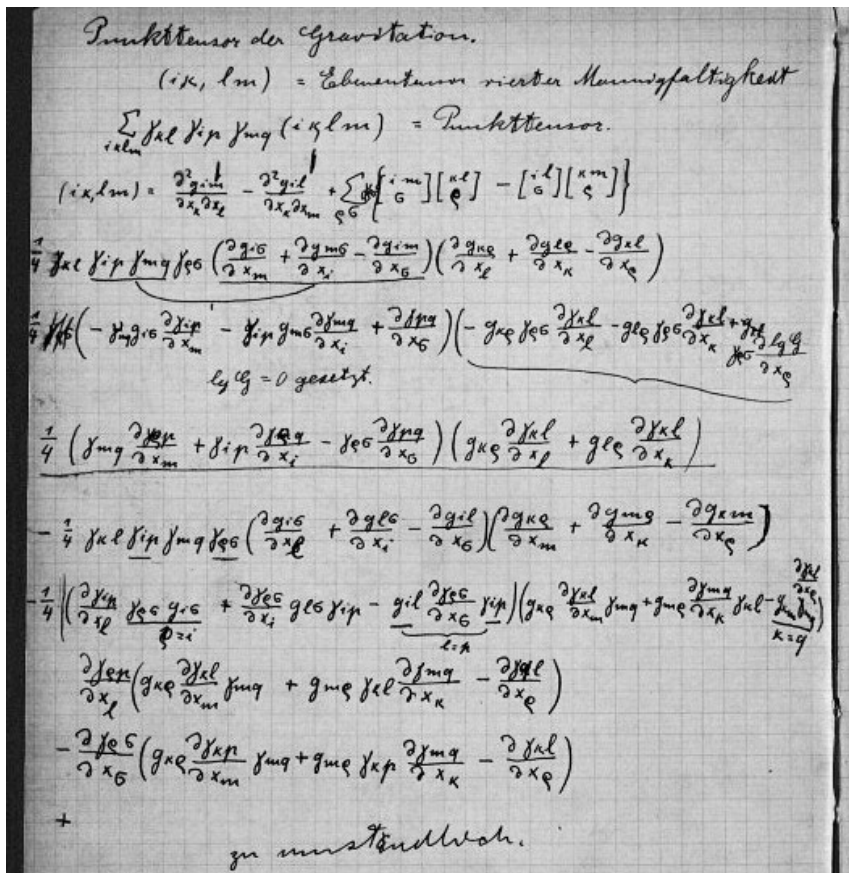 Punkttensor der Gravitation.
(iκ, lm) = Ebenentensor vierter Mannigfaltigkeit
∑_{iκlm} γ_{κl} γ_{ip} γ_{mq} (iκ lm) = Punkttensor.
(iκ, lm) = ∂²g_{im}/∂x_κ∂x_l − ∂²g_{il}/∂x_κ∂x_m + ∑_{ρσ} { [i m / σ] [κ l / ρ] − [i l / σ] [κ m / ρ] }
1/4 γ_{κl} γ_{ip} γ_{mq} γ_{ρσ} (∂g_{iσ}/∂x_m + ∂g_{mσ}/∂x_i − ∂g_{im}/∂x_σ)(∂g_{κρ}/∂x_l + ∂g_{lρ}/∂x_κ − ∂g_{κl}/∂x_ρ)
1/4 (− γ_{mq} g_{iσ} ∂γ_{ip}/∂x_m − γ_{ip} g_{mσ} ∂γ_{mq}/∂x_i + ∂γ_{pq}/∂x_σ)(− g_{κρ} γ_{ρσ} ∂γ_{κl}/∂x_l − g_{lρ} γ_{ρσ} ∂γ_{κl}/∂x_κ + γ_{ρσ} ∂ lg G/∂x_ρ)
lg G = 0 gesetzt.
1/4 (γ_{mq} ∂γ_{ρp}/∂x_m + γ_{ip} ∂γ_{ρq}/∂x_i − γ_{ρσ} ∂γ_{pq}/∂x_σ)(g_{κρ} ∂γ_{κl}/∂x_l + g_{lρ} ∂γ_{κl}/∂x_κ)
− 1/4 γ_{κl} γ_{ip} γ_{mq} γ_{ρσ} (∂g_{iσ}/∂x_l + ∂g_{lσ}/∂x_i − ∂g_{il}/∂x_σ)(∂g_{κρ}/∂x_m + ∂g_{mρ}/∂x_κ − ∂g_{κm}/∂x_ρ)
− 1/4 (∂γ_{ip}/∂x_l γ_{ρσ} g_{iσ} + ∂γ_{ρσ}/∂x_i g_{lσ} γ_{ip} − g_{il} ∂γ_{ρσ}/∂x_σ γ_{ip})(g_{κρ} ∂γ_{κl}/∂x_m γ_{mq} + g_{mρ} ∂γ_{mq}/∂x_κ γ_{κl} − g_{κm} γ_{mq} ∂γ_{κl}/∂x_ρ)
ρ=i l=p κ=q
∂γ_{ρp}/∂x_l (g_{κρ} ∂γ_{κl}/∂x_m γ_{mq} + g_{mρ} γ_{κl} ∂γ_{mq}/∂x_κ − ∂γ_{ql}/∂x_ρ)
− ∂γ_{ρσ}/∂x_σ (g_{κρ} ∂γ_{κp}/∂x_m γ_{mq} + g_{mρ} γ_{κp} ∂γ_{mq}/∂x_κ − ∂γ_{κl}/∂x_ρ)
+
zu umständlich.